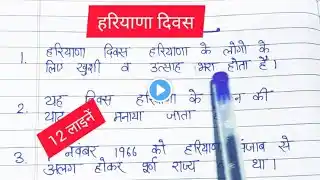 हरियाणा दिवस
1. हरियाणा दिवस हरियाणा के लोगो के
लिए खुशी व उत्साह भरा होता है।
2. यह दिवस के की
मनाया जाता
12 लाइनें
3. नवंबर 1966 को पंजाब से
अलग होकर पूर्ण राज्य था।